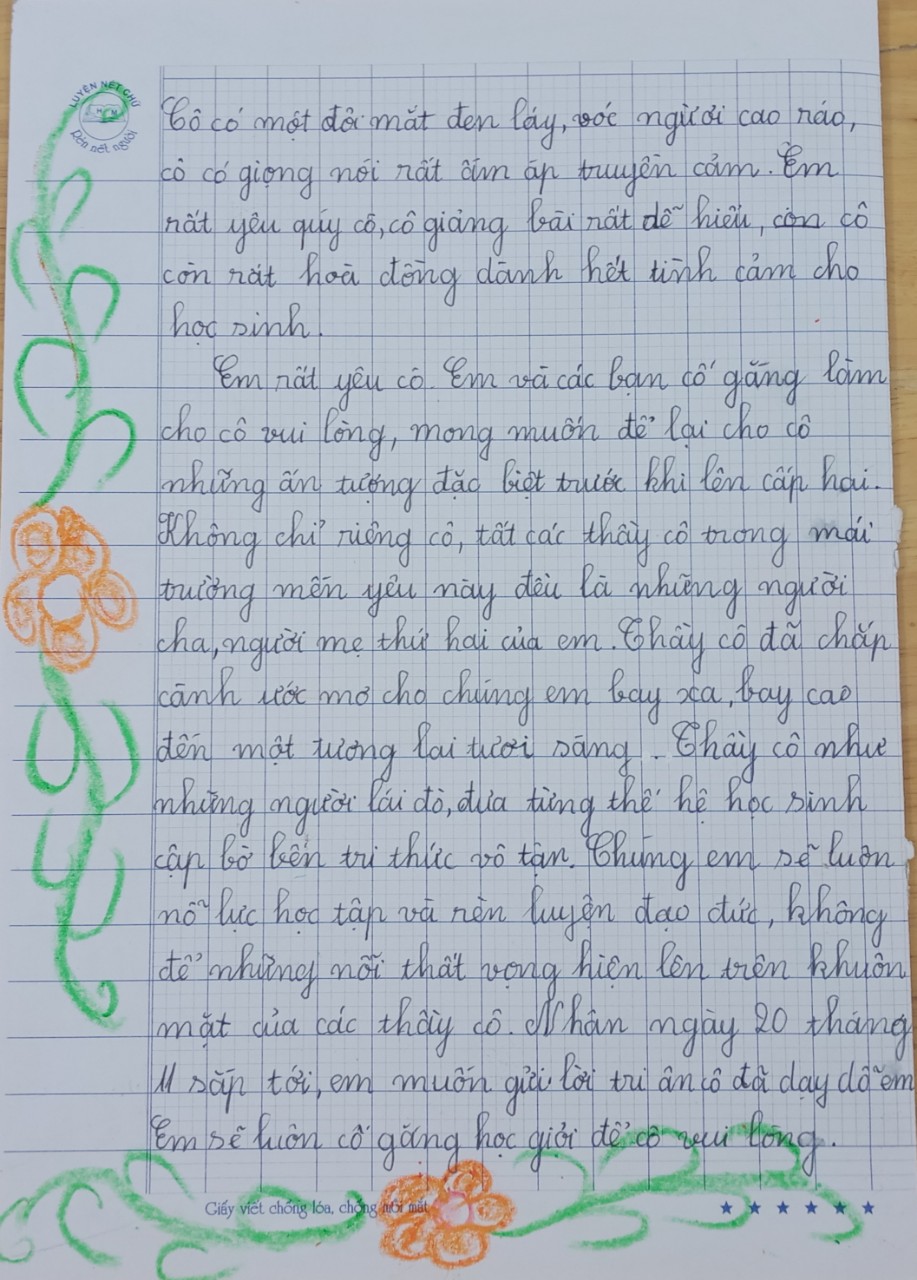 LUYỆN NÉT CHỮ
Rèn nết người
Cô có một đôi mắt đen láy, vóc người cao ráo,
cô có giọng nói rất ấm áp truyền cảm. Em
rất yêu quý cô, cô giảng bài rất dễ hiểu, còn cô
còn rất hoà đồng dành hết tình cảm cho
học sinh.
Em rất yêu cô. Em và các bạn cố gắng làm
cho cô vui lòng, mong muốn để lại cho cô
những ấn tượng đặc biệt trước khi lên cấp hai.
Không chỉ riêng cô, tất các thầy cô trong mái
trường mến yêu này đều là những người
cha, người mẹ thứ hai của em. Thầy cô đã chắp
cánh ước mơ cho chúng em bay xa, bay cao
đến một tương lai tươi sáng. Thầy cô như
những người lái đò, đưa từng thế hệ học sinh
cập bờ bến tri thức vô tận. Chúng em sẽ luôn
nỗ lực học tập và rèn luyện đạo đức, không
để những nỗi thất vọng hiện lên trên khuôn
mặt của các thầy cô. Nhân ngày 20 tháng
11 sắp tới, em muốn gửi lời tri ân cô đã dạy dỗ em
Em sẽ luôn cố gắng học giỏi để cô vui lòng.
Giấy viết chống lóa, chống mỏi mắt